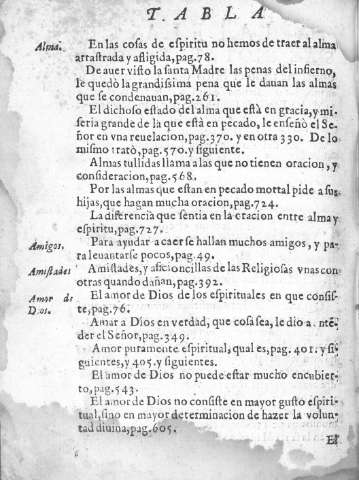 TABLA
Alma. En las cosas de espiritu no hemos de traer al alma
arrastrada y afligida, pag.78.
De auer visto la santa Madre las penas del infierno,
le quedò la grandissima pena que le dauan las almas
que se condenauan, pag.261.
El dichoso estado del alma que està en gracia, y mi-
seria grande de la que està en pecado, le enseñò el Se-
ñor en vna reuelacion, pag.370. y en otra 330. De lo
mismo tratò, pag.570. y siguiente.
Almas tullidas llama a las que no tienen oracion, y
consideracion, pag.568.
Por las almas que estan en pecado mortal pide a sus
hijas, que hagan mucha oracion, pag.724.
La diferencia que sentia en la oracion entre alma y
espiritu, pag.727.
Amigos. Para ayudar a caer se hallan muchos amigos, y pa-
ra leuantarse pocos, pag.49.
Amistades Amistades, y aficioncillas de las Religiosas vnas con
otras quando dañan, pag.392.
Amor de El amor de Dios de los espirituales en que consis-
Dios. te, pag.76.
Amar a Dios en verdad, que cosa sea, le dio a entẽ-
der el Señor, pag.349.
Amor puramente espiritual, qual es, pag.401. y si-
guientes, y 405. y siguientes.
El amor de Dios no puede estar mucho encubier-
to, pag.543.
El amor de Dios no consiste en mayor gusto espiri-
tual, sino en mayor determinacion de hazer la volun-
tad diuina, pag.605.
El